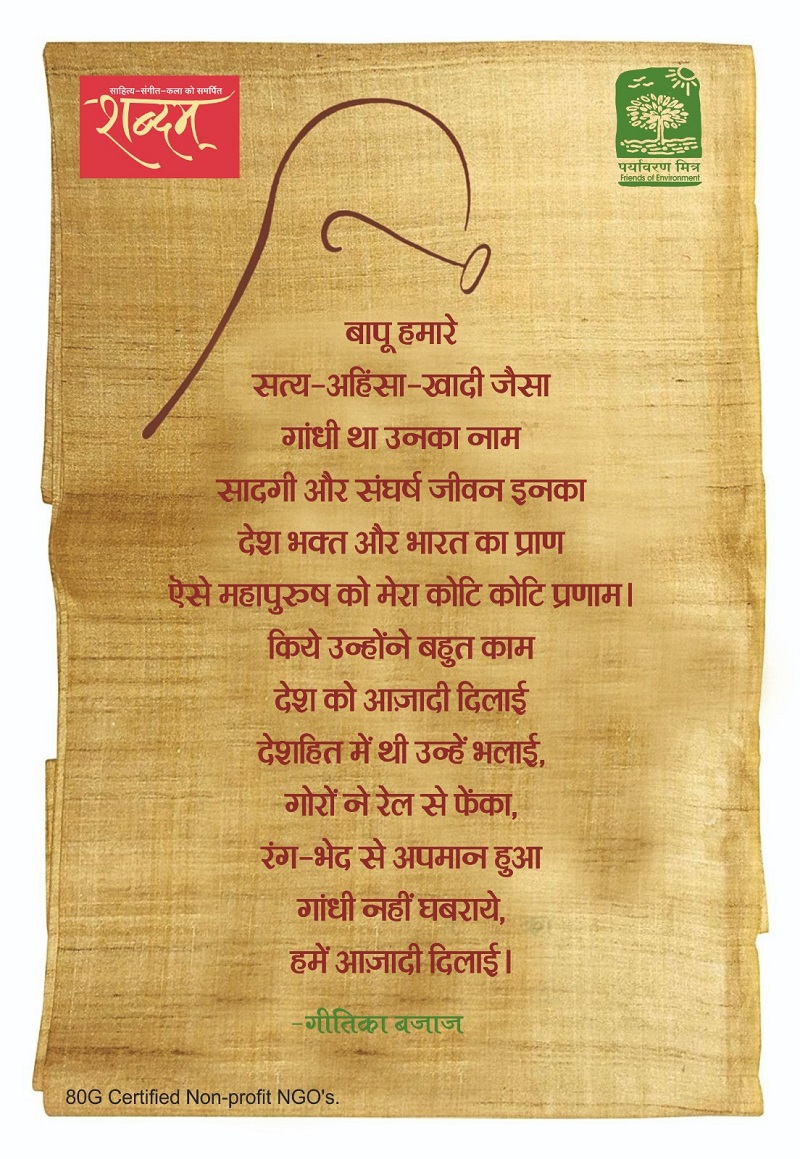 साहित्य-संगीत-कला को समर्पित
शब्दम्
पर्यावरण मित्र
Friends of Environment
बापू हमारे
सत्य-अहिंसा-खादी जैसा
गांधी था उनका नाम
सादगी और संघर्ष जीवन इनका
देश भक्त और भारत का प्राण
ऎसे महापुरुष को मेरा कोटि कोटि प्रणाम।
किये उन्होंने बहुत काम
देश को आज़ादी दिलाई
देशहित में थी उन्हें भलाई,
गोरों ने रेल से फेंका,
रंग-भेद से अपमान हुआ
गांधी नहीं घबराये,
हमें आज़ादी दिलाई।
-गीतिका बजाज
80G Certified Non-profit NGO's.